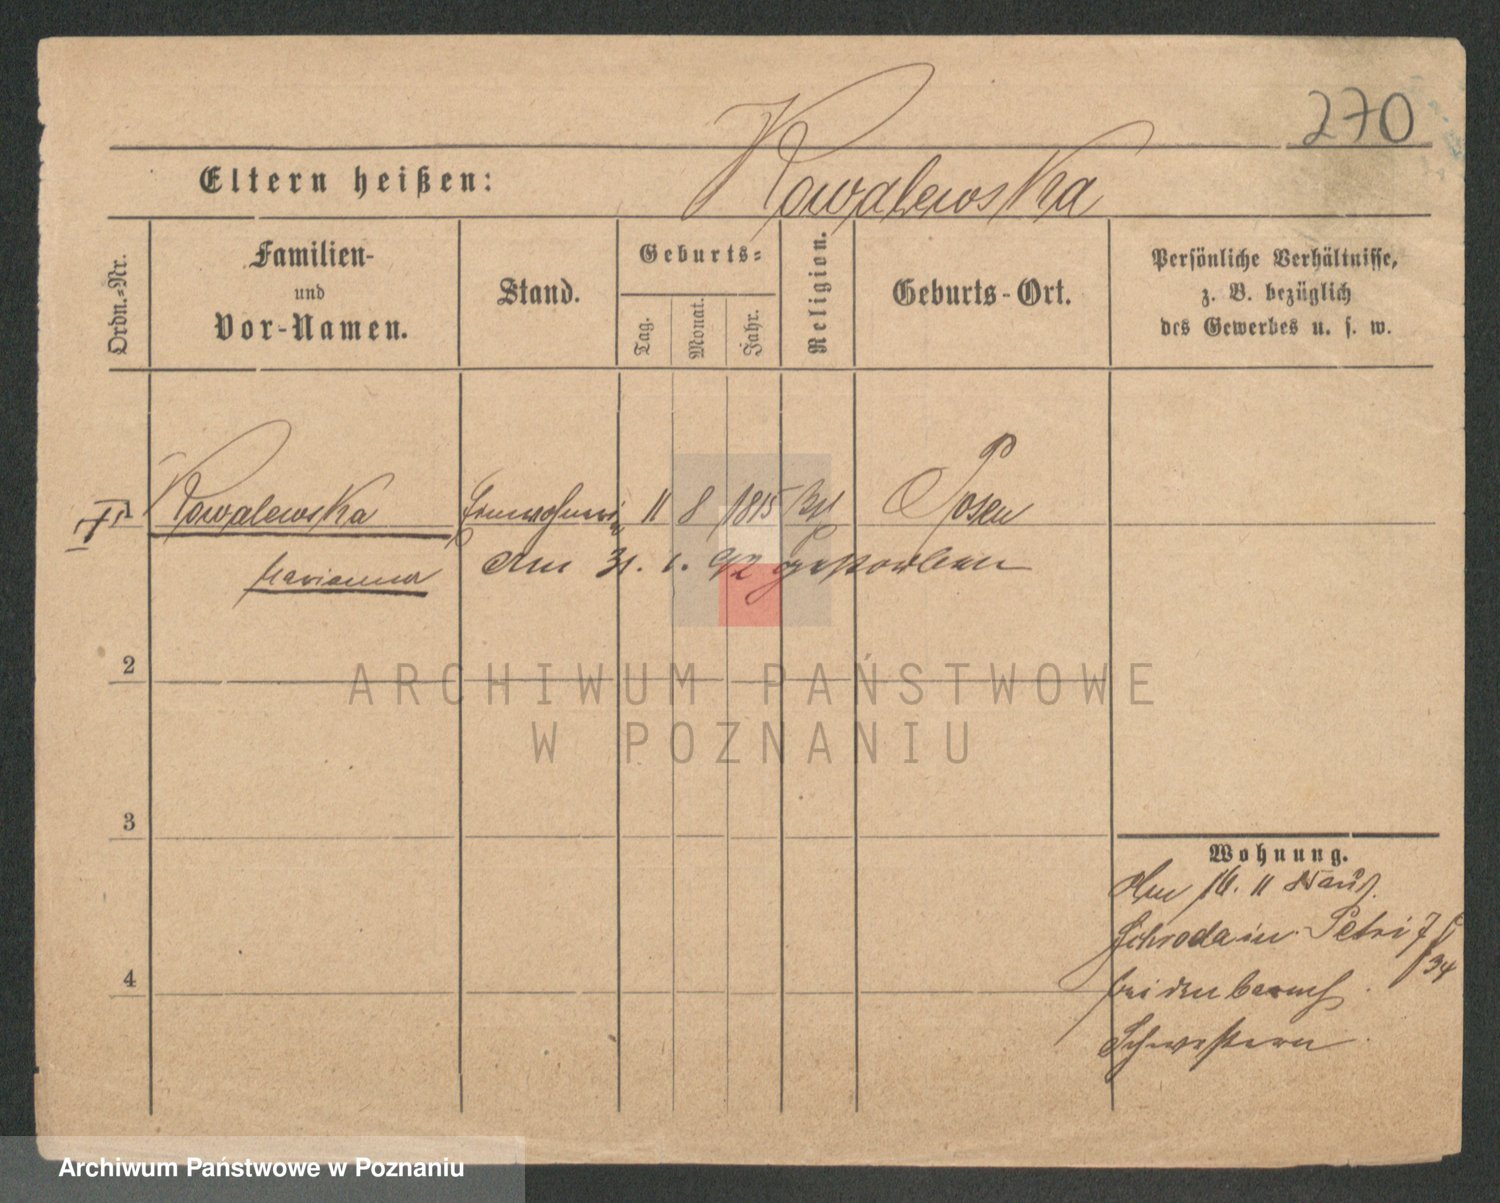 270
Eltern heißen: Kowalewska
Ordn.=Nr.
Familien-
und
Vor-Namen.
Stand.
Geburts=
Tag.
Monat.
Jahr.
Religion.
Geburts-Ort.
Persönliche Verhältnisse,
z. B. bezüglich
des Gewerbes u. s. w.
Kowalewska 11 8 1815 Posen
Marianna Am 31. 1. 92 gestorben
2
ARCHIWUM PAŃSTWOWE
W POZNANIU
3
Wohnung.
Am 16. 11
Schroda in Petri
4
bei den
Schwestern
Archiwum Państwowe w Poznaniu